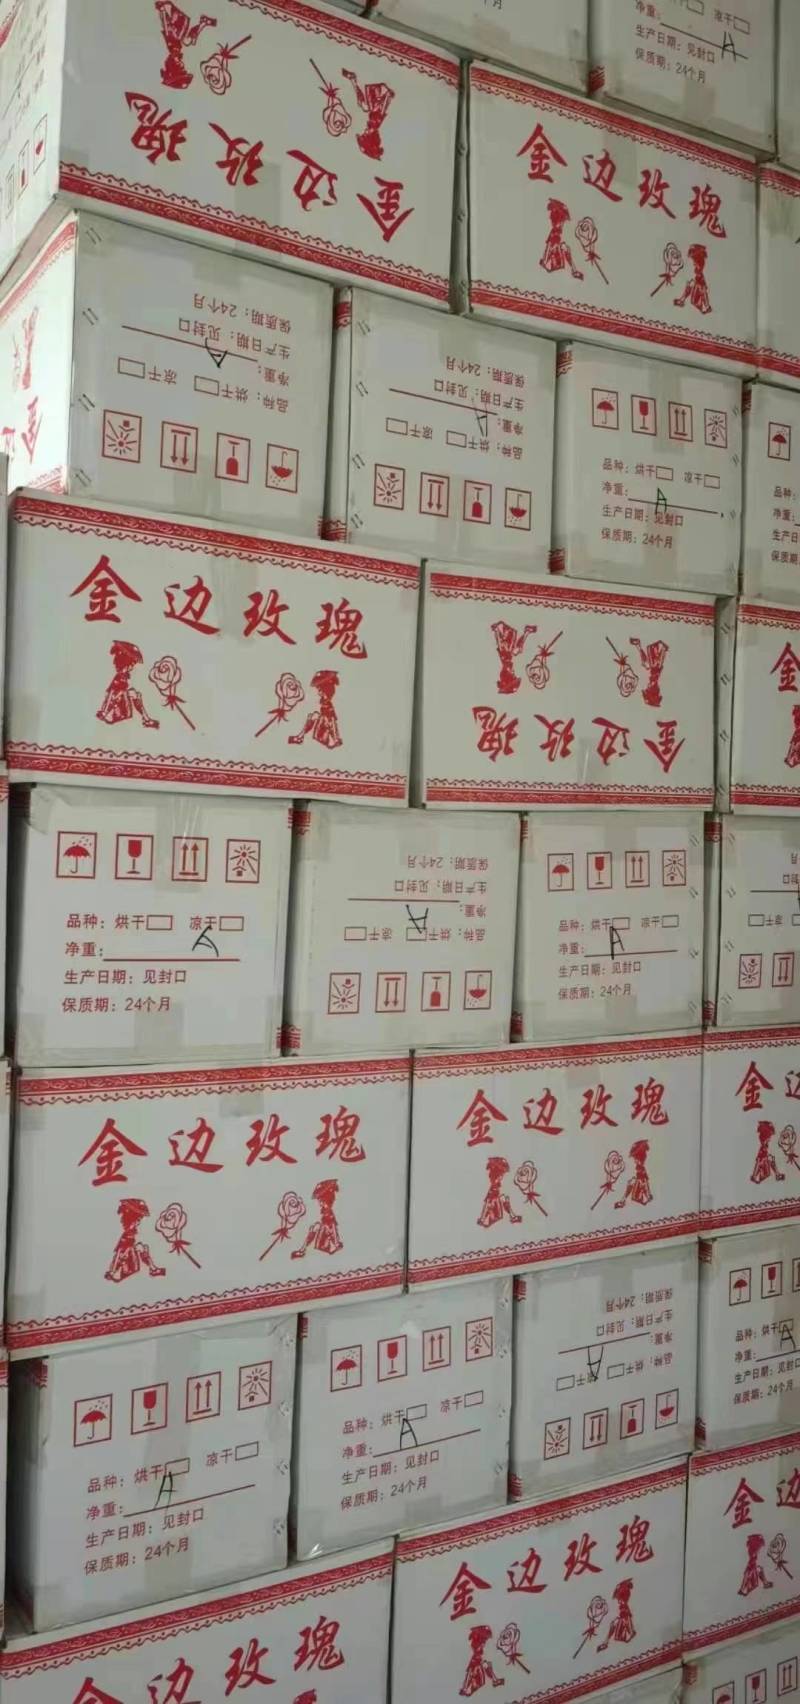 净重: A
生产日期: 见封口
保质期: 24个月
金边玫瑰
金边玫瑰
品种: 烘干 凉干
净重: A
生产日期: 见封口
保质期: 24个月
品种: 烘干 凉干
净重: A
生产日期: 见封口
保质期: 24个月
品种: 烘干 凉干
净重: A
生产日期: 见封口
保质期: 24个月
品种:
净重:
金边玫瑰
金边玫瑰
金
品种: 烘干 凉干
净重: A
生产日期: 见封口
保质期: 24个月
品种: 烘干 凉干
净重: A
生产日期: 见封口
保质期: 24个月
品种: 烘干 凉干
净重: A
生产日期: 见封口
保质期: 24个月
金边玫瑰
金边玫瑰
金边
品种: 烘干 凉干
净重: A
生产日期: 见封口
保质期: 24个月
品种: 烘干 凉干
净重: A
生产日期: 见封口
保质期: 24个月
品种: 烘干 凉干
净重: A
生产日期: 见封口
保质期: 24个月
品种: 烘干
净重: A
生产日期: 见封口
保质期: 24个月
金边玫瑰
金边玫瑰
金边